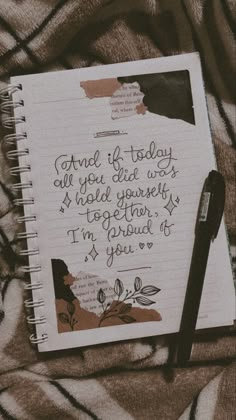 And if today
all you did was
hold yourself
together,
I'm proud of
you